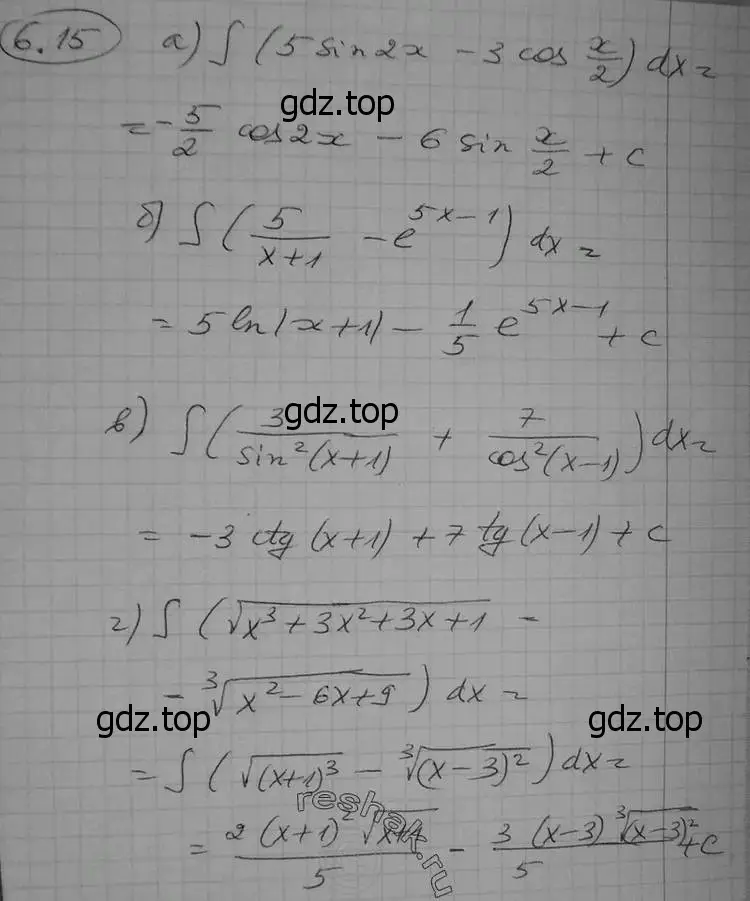 6.15 а) ∫ (5 sin 2x - 3 cos x/2) dx =
gdz.top
= -5/2 cos 2x - 6 sin x/2 + c
б) ∫ (5/(x+1) - e^(5x-1)) dx =
= 5 ln |x+1| - 1/5 e^(5x-1) + c
в) ∫ (3/sin²(x+1) + 7/cos²(x-1)) dx =
gdz.top
= -3 ctg (x+1) + 7 tg (x-1) + c
г) ∫ (√(x³+3x²+3x+1) -
- ∛(x²-6x+9)) dx =
gdz.top gdz.top
= ∫ (√(x+1)³ - ∛(x-3)²) dx =
reshak.ru
= 2(x+1)²√(x+1)/5 - 3(x-3)∛(x-3)²/5 + c